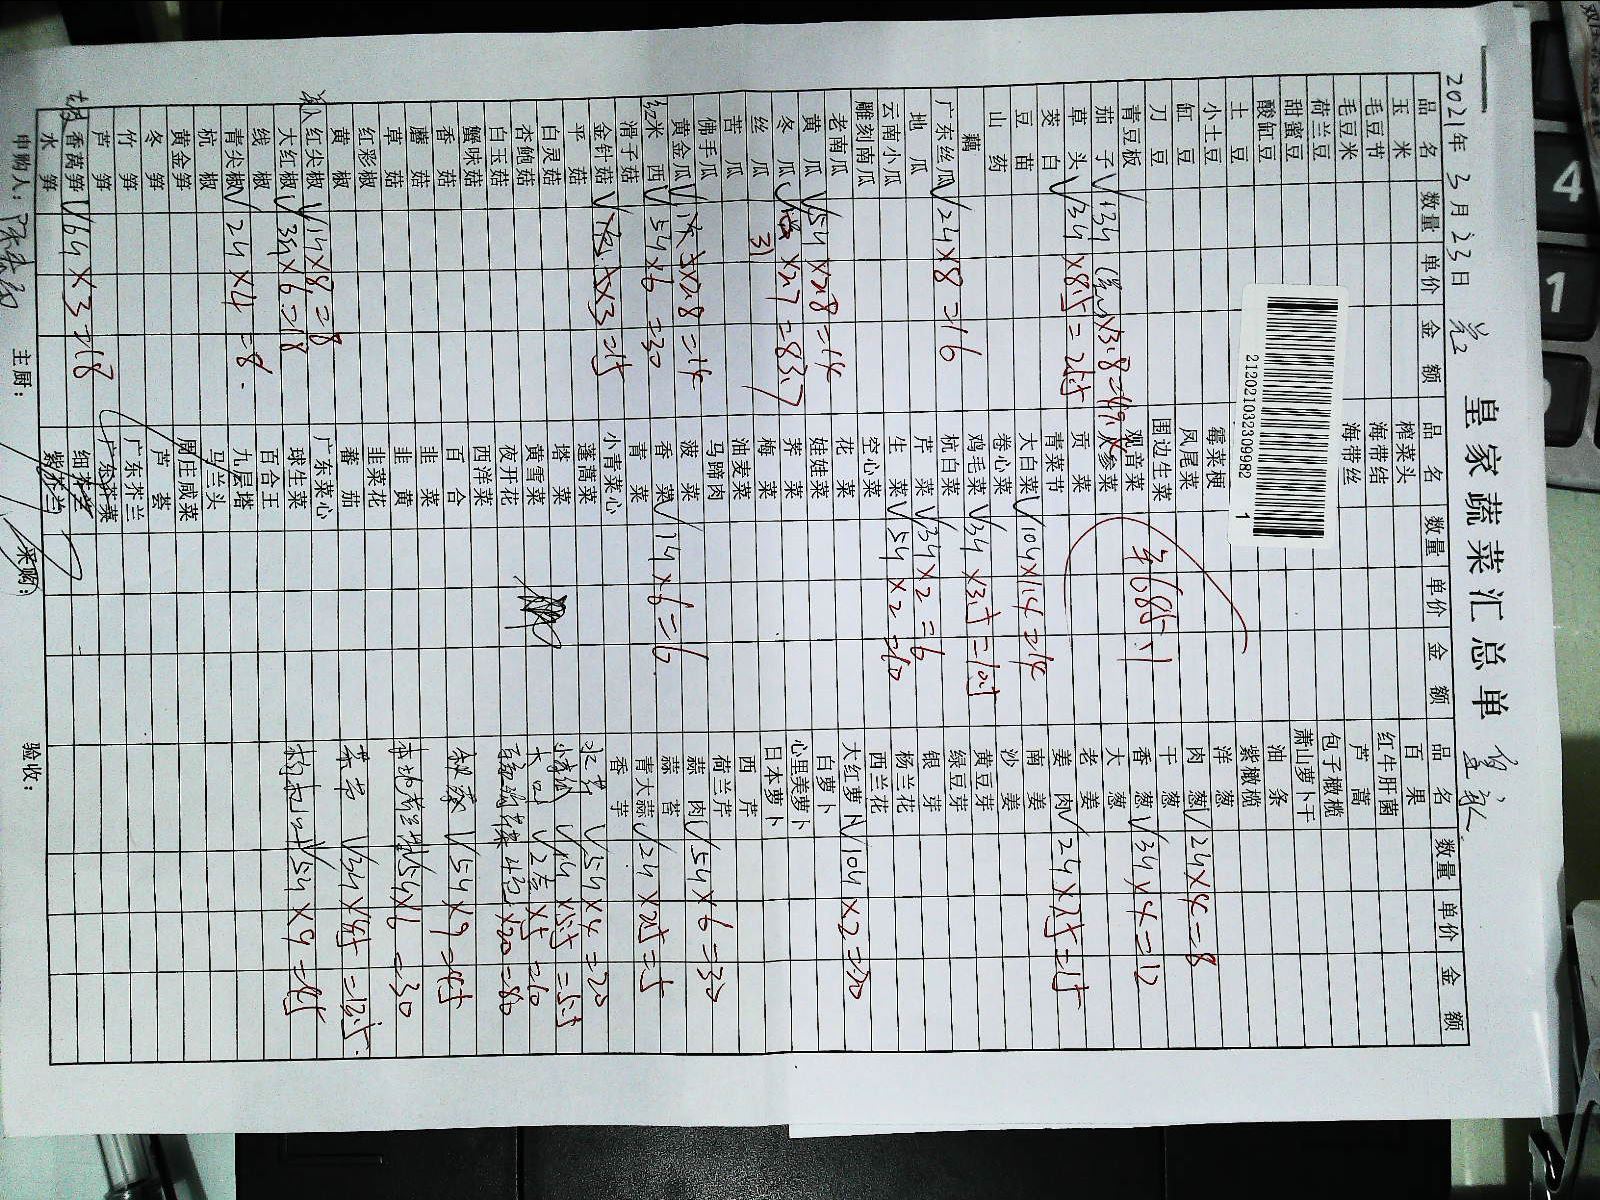 皇家蔬菜汇总单
2021年3月23日
21202103230998​2 1
品名 数量 单价 金额 品名 数量 单价 金额 品名 数量 单价 金额
玉米
毛豆节
毛豆米
荷兰豆
甜蜜豆
酸缸豆
土豆
小土豆
缸豆
刀豆
青豆板
茄子
草头 √3斤×8.5=25.5
茭白
豆苗
山药
藕
广东丝瓜 √2斤×8=16
地瓜
云南小瓜
雕刻南瓜
老南瓜
黄瓜 √5斤×2.8=14
冬瓜 31×2.7=83.7
丝瓜
苦瓜
佛手瓜
黄金瓜
红米西 √5斤×6=30
滑子菇
金针菇
平菇
白灵菇
杏鲍菇
白玉菇
蟹味菇
香菇
蘑菇
草菇
红彩椒
黄椒
红尖椒 √1斤×8=8
大红椒 √3斤×6=18
线椒
青尖椒 √2斤×4=8
杭椒
黄金笋
冬笋
竹笋
芦笋
香莴笋 √6斤×3=18
水笋
榨菜头
海带结
海带丝
霉菜梗
凤尾菜
围边生菜
观音菜
人参菜
贡菜
青菜节
大白菜 √10斤×1.4=14
卷心菜
鸡毛菜 √3斤×3.5=10.5
杭白菜
芹菜 √3斤×2=6
生菜 √5斤×2=10
空心菜
花菜
娃娃菜
荠菜
梅菜
油麦菜
马蹄肉
菠菜
香菜 √1斤×6=6
青菜
小青菜心
蓬蒿菜
塔菜
黄雪菜
夜开花
西洋菜
百合
韭菜
韭黄
韭菜花
蕃茄
广东菜心
球生菜
百合王
九层塔
马兰头
周庄咸菜
芦荟
广东芥兰
广东芥菜
细芥兰
紫芥兰
¥685.1
百果
红牛肝菌
芦蒿
包子橄榄
萧山萝卜干
油条
紫橄榄
洋葱
肉葱 √2斤×4=8
干葱
香葱 √3斤×4=12
大葱
老姜
姜肉 √2斤×7.5=15
南姜
沙姜
黄豆芽
绿豆芽
银芽
杨兰花
西兰花
大红萝卜 √10斤×2=20
白萝卜
心里美萝卜
日本萝卜
西芹
荷兰芹
蒜肉 √5斤×6=30
蒜苔
青大蒜 √2斤×2.5=5
香芋
√5斤×4=20
√5斤×9=45
√5斤×6=30
√3斤×4.5=13.5
枸杞 √5斤×9=45
申购人： 主厨： 采购： 验收：